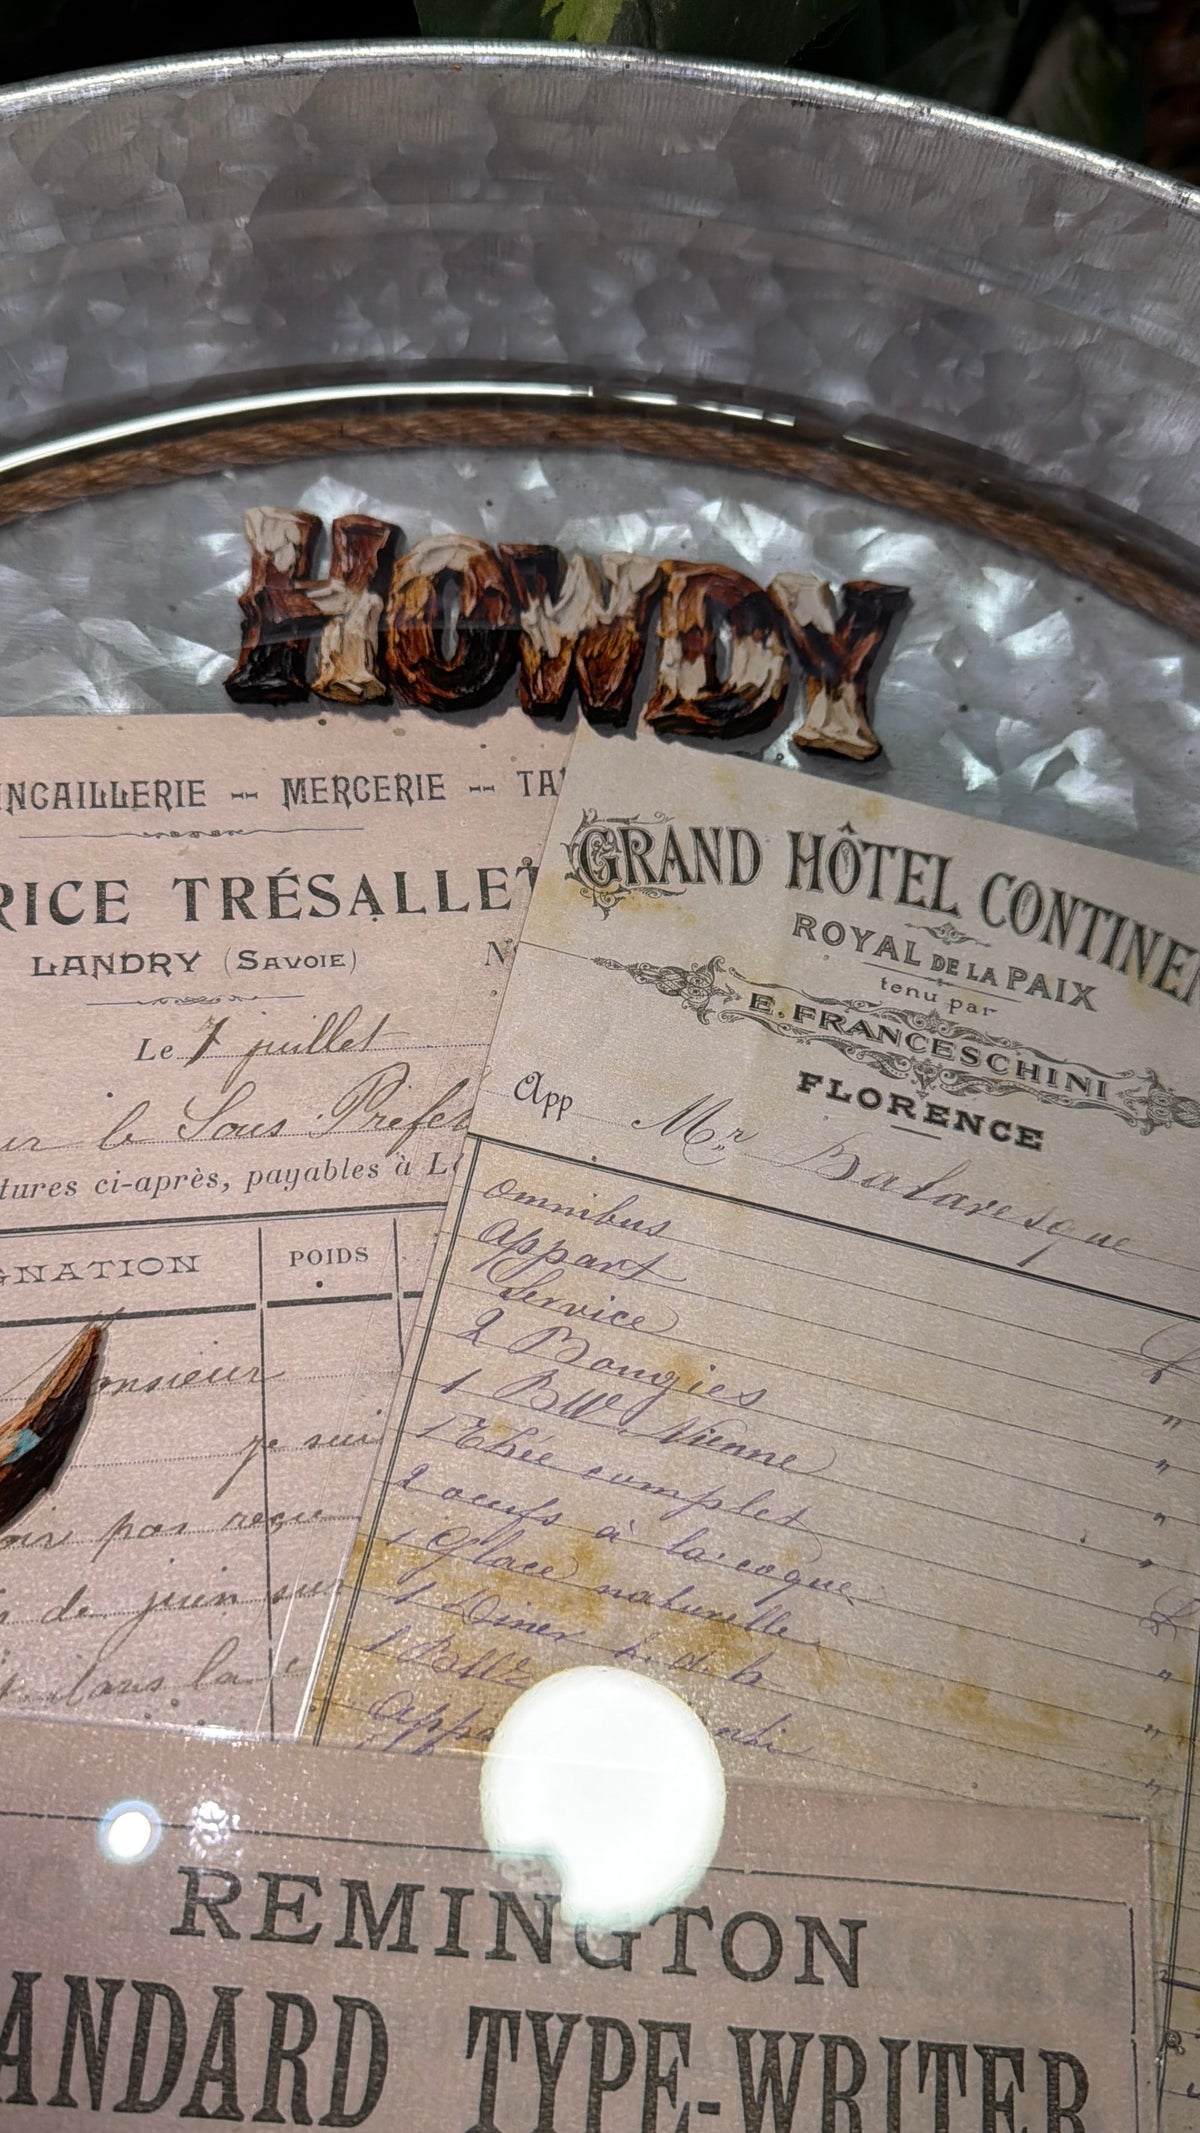 HOWDY
INCAILLERIE -- MERCERIE -- TA
RICE TRÉSALLET
LANDRY (SAVOIE)
N°
Le 7 juillet
ur le Sous Préfet
tures ci-après, payables à L
GNATION
POIDS
onsieur
je sui
oir pas reçu
de juin sur
dans la
GRAND HÔTEL CONTINE
ROYAL DE LA PAIX
tenu par
E. FRANCESCHINI
FLORENCE
App Mr Balaresque
Omnibus
Appart
Service
2 Bougies
1 Vienne
1 Thée complet
2 oeufs à la coque
1 Glace naturelle
1 Diner
1
Appa
REMINGTON
ANDARD TYPE-WRITER